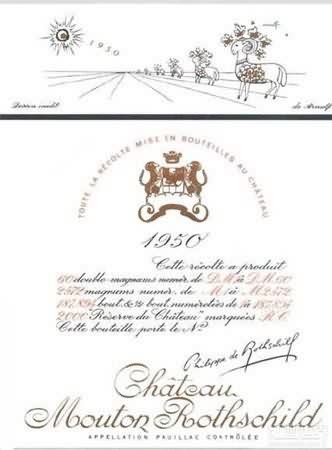 1950
Dessin inédit de Arnulf
TOUTE LA RÉCOLTE MISE EN BOUTEILLES AU CHÂTEAU
1950
Cette récolte a produit
60 double-magnums numér. de D.M.1 à D.M.60
2.572 magnums numér. de M.1 à M.2.572
187.894 bout. & ½ bout. numérotées de 1 à 187.894
2000 "Réserve du Château" marquées R.C.
Cette bouteille porte le No
Philippe de Rothschild
Château
Mouton Rothschild
APPELLATION PAUILLAC CONTRÔLÉE